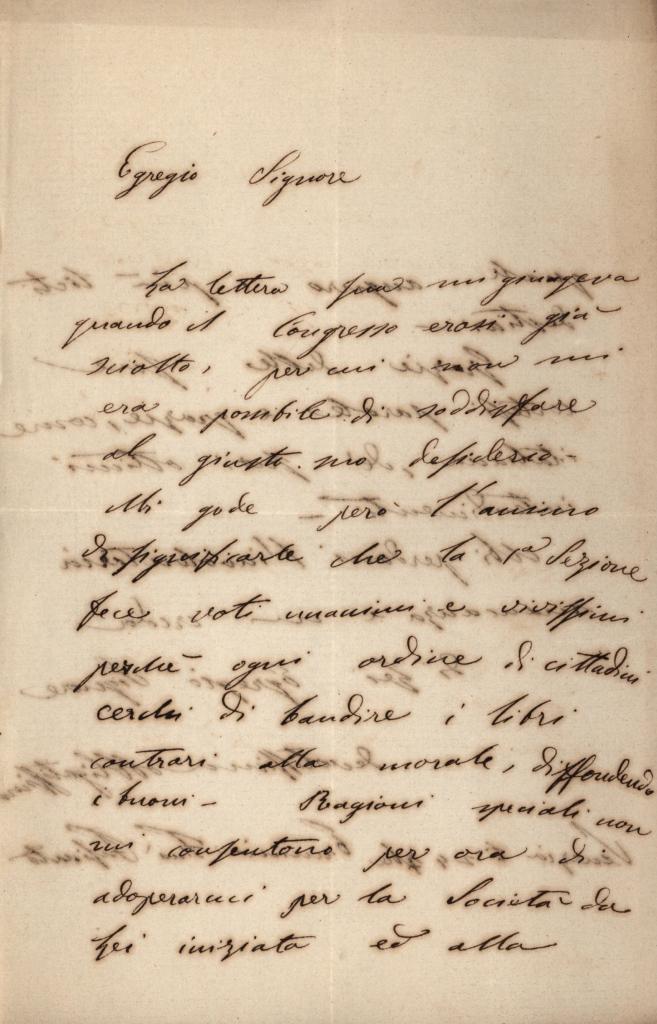 Egregio Signore
La lettera sua mi giungeva
quando il Congresso erasi già
sciolto, per cui non mi
era possibile di soddisfare
al giusto suo desiderio -
Mi gode però l'animo
di significarle che la 1ª Sezione
fece voti unanimi e vivissimi
perchè ogni ordine di cittadini
cerchi di bandire i libri
contrari alla morale, diffondendo
i buoni - Ragioni speciali non
mi consentono per ora di
adoperarmi per la Società da
Lei iniziata ed alla